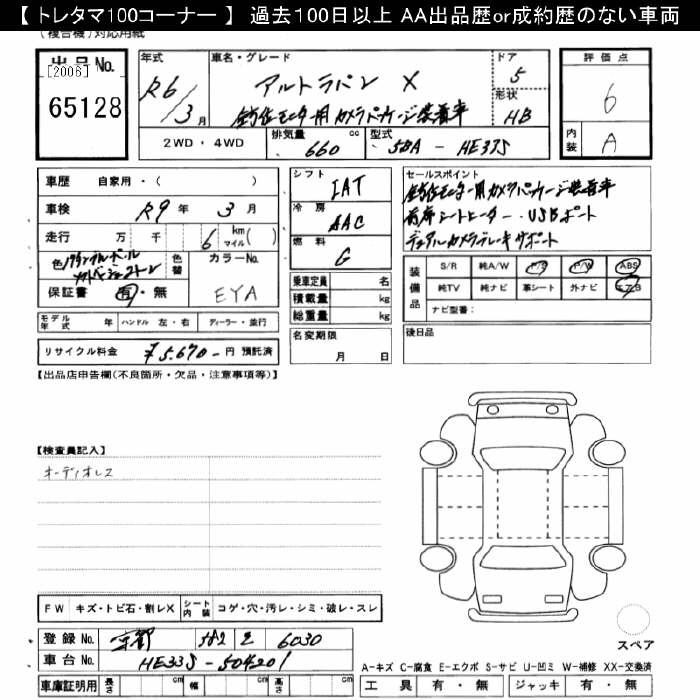 【 トレタマ100コーナー 】 過去100日以上 AA出品歴or成約歴のない車両
(複合機)対応用紙
出品No.
[2006]
65128
年式
R6/3月
車名・グレード
アルトラパン X
全方位モニター用カメラパッケージ装着車
ドア
5
形状
HB
評価点
6
内装
A
2WD・4WD
排気量
660
cc
型式
5BA - HE33S
車歴 自家用・( )
車検 R9年 3月
走行 万 千 6 km マイル( )
色
色替
カラーNo.
EYA
保証書 有・無
モデル年式 年 ハンドル 左・右 ディーラー・並行
リサイクル料金 ¥5,670- 円 預託済
シフト
IAT
冷房
AAC
燃料
G
乗車定員 名
積載量 kg
総重量 kg
名変期限
月 日
セールスポイント
全方位モニター用カメラパッケージ装着車
前席シートヒーター・USBポート
デュアルカメラブレーキサポート
装備品
S/R 純A/W P/S P/W ABS
純TV 純ナビ 革シート 外ナビ エアB
ナビ型番:
後日品
【出品店申告欄(不良個所・欠品・注意事項等)】
【検査員記入】
オーディオレス
FW キズ・トビ石・割レX シート内装 コゲ・穴・汚レ・シミ・破レ・スレ
登録No. 582 6030
車台No. HE33S-504201
車庫証明用 長さ cm 幅 cm 高さ cm
スペア
A-キズ C-腐食 E-エクボ S-サビ U-凹ミ W-補修 XX-交換済
工具 有・無 ジャッキ 有・無